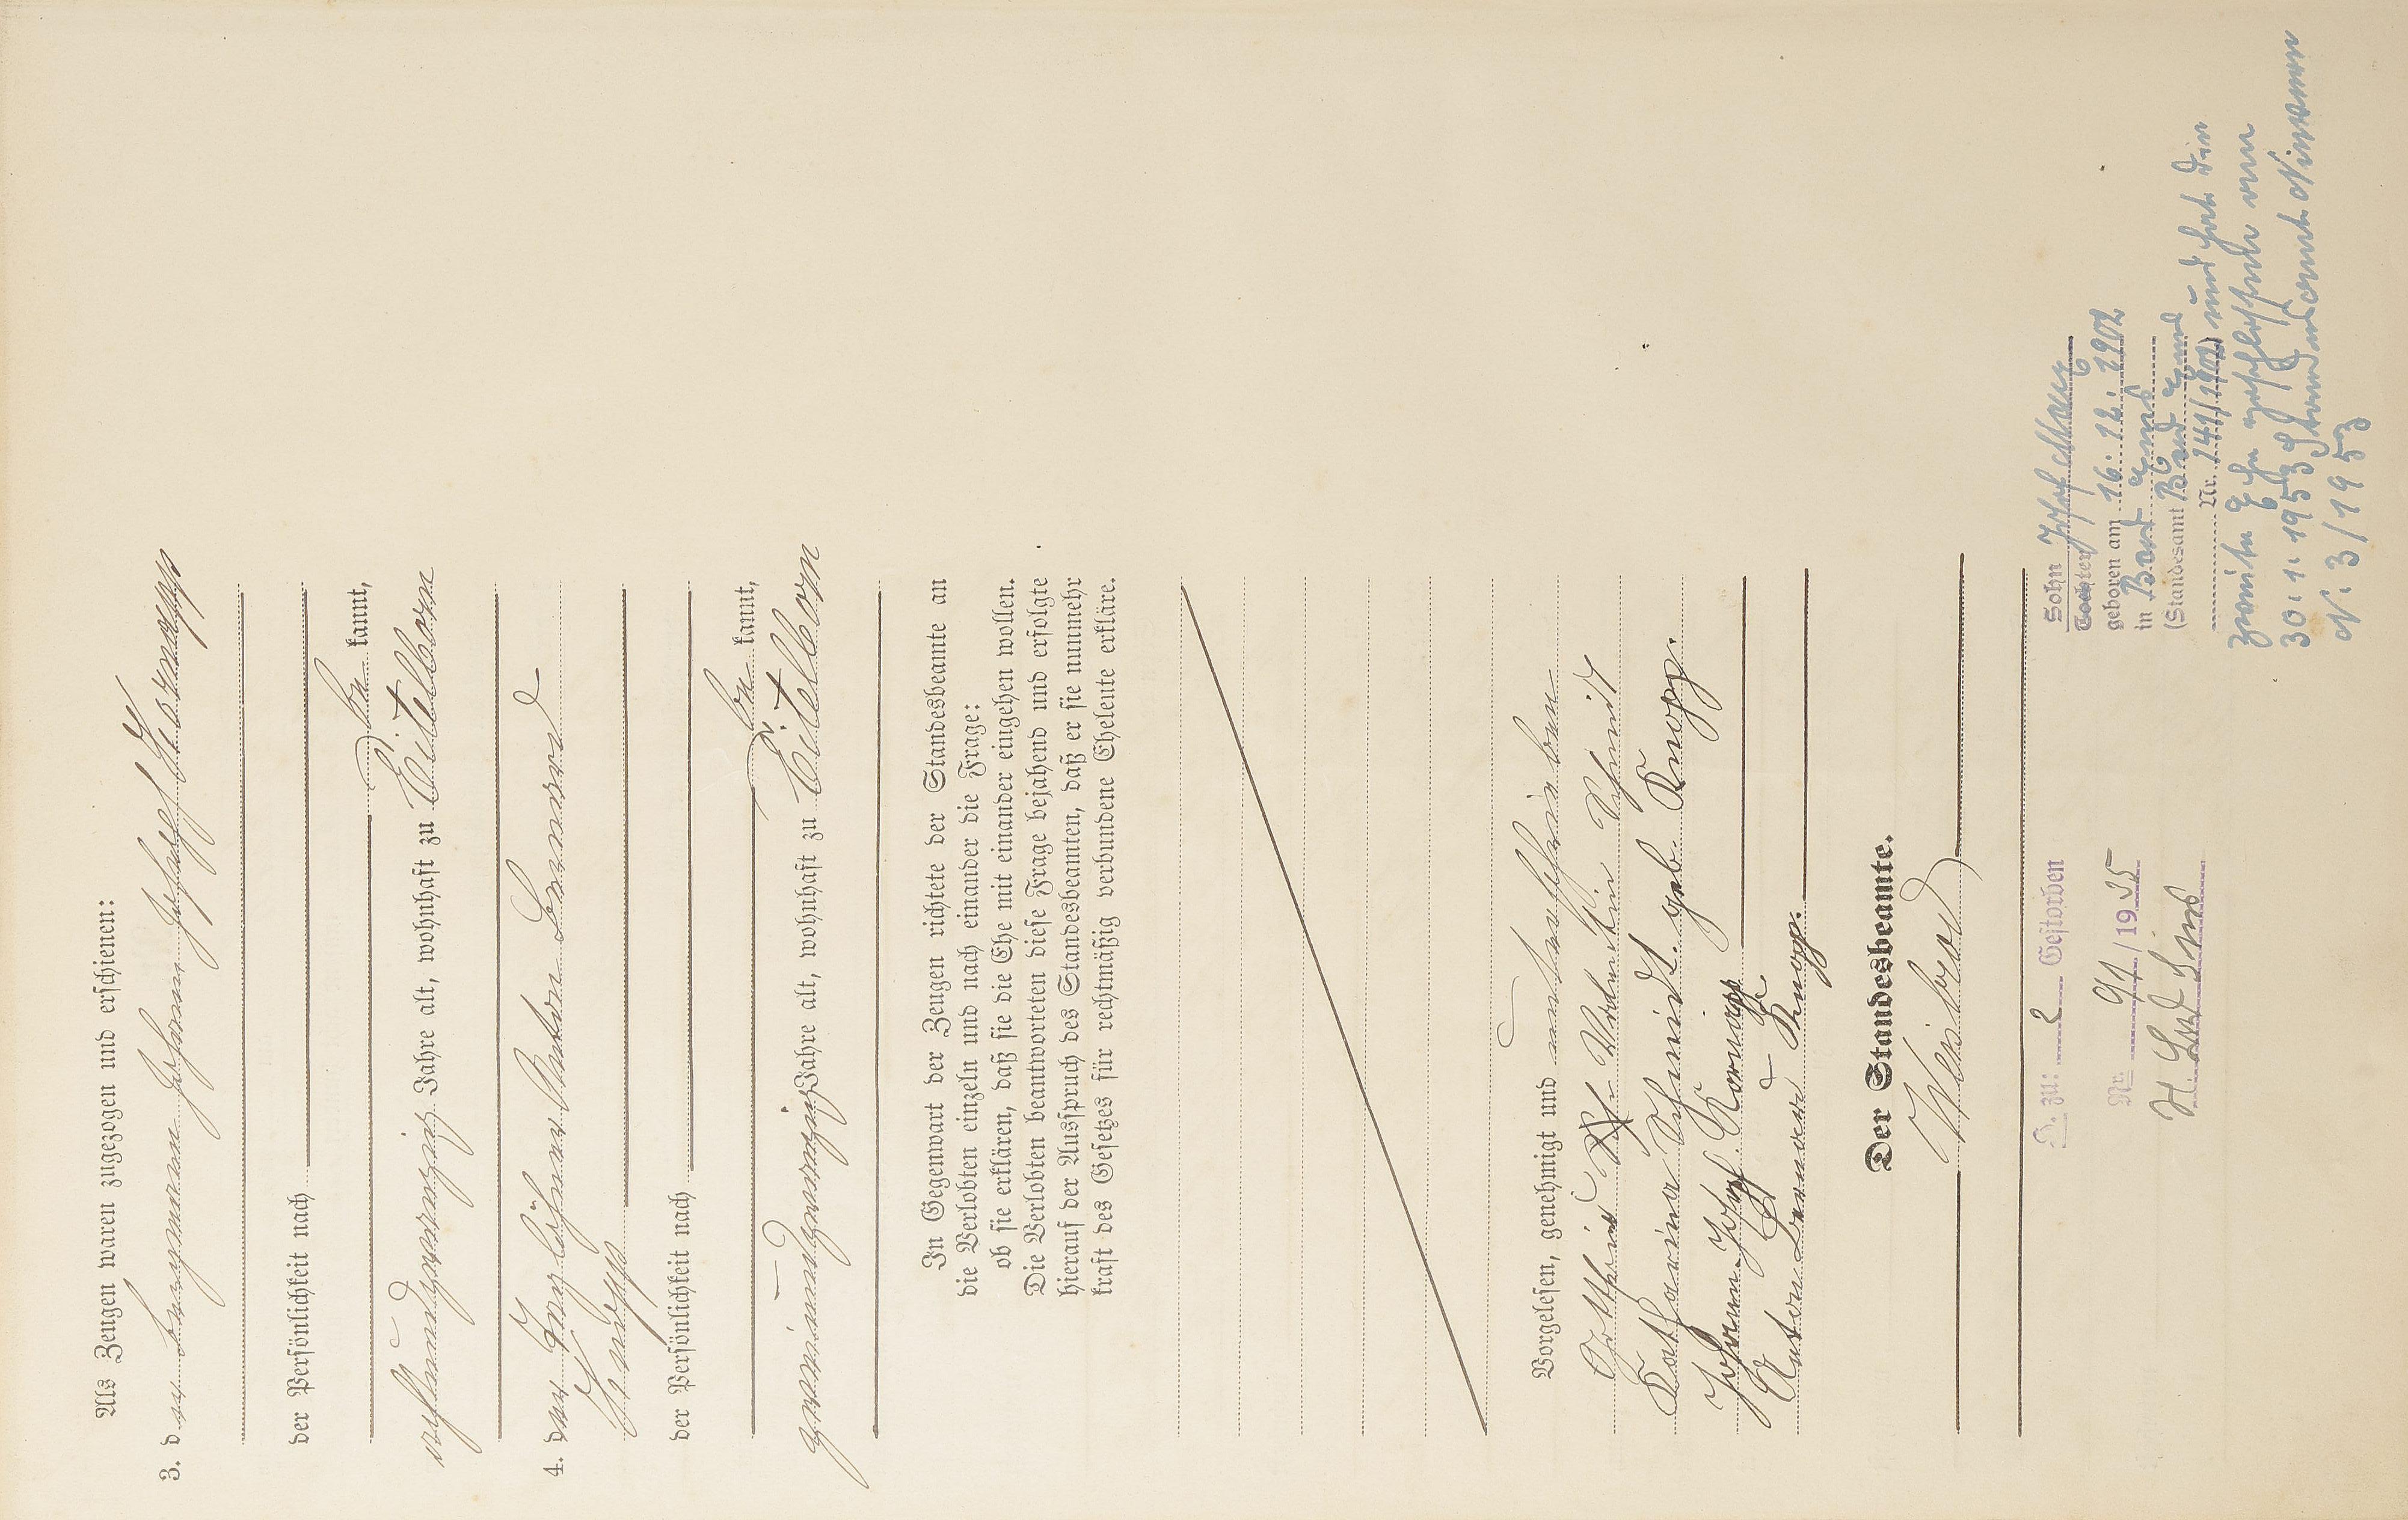 Als Zeugen waren zugezogen und erschienen:
3. der Bergmann Johann Josef Kornapp
der Persönlichkeit nach
be kannt,
achtundzwanzig Jahre alt, wohnhaft zu Eitelborn
4. der Taglöhner Anton Leonard
Knopp
der Persönlichkeit nach
be kannt,
zweiundzwanzig Jahre alt, wohnhaft zu Eitelborn
In Gegenwart der Zeugen richtete der Standesbeamte an
die Verlobten einzeln und nach einander die Frage:
ob sie erklären, daß sie die Ehe mit einander eingehen wollen.
Die Verlobten beantworteten diese Frage bejahend und erfolgte
hierauf der Ausspruch des Standesbeamten, daß er sie nunmehr
kraft des Gesetzes für rechtmäßig verbundene Eheleute erkläre.
Vorgelesen, genehmigt und unterschrieben
Valentin Schmidt
Katharina Schmidt geb. Knopp.
Johann Josef Kornapp
Anton Leonard Knopp.
Der Standesbeamte.
Weisbrod
T. zu: 2 Gestorben
Nr. 91/1935
Sohn Josef
Tochter
geboren am 16.12.1902
in Bad Ems
(Standesamt Bad Ems
Nr. 141/1902) und hat die
zweite Ehe geschlossen am
30.1.1953 Standesamt
Nr. 3/1953